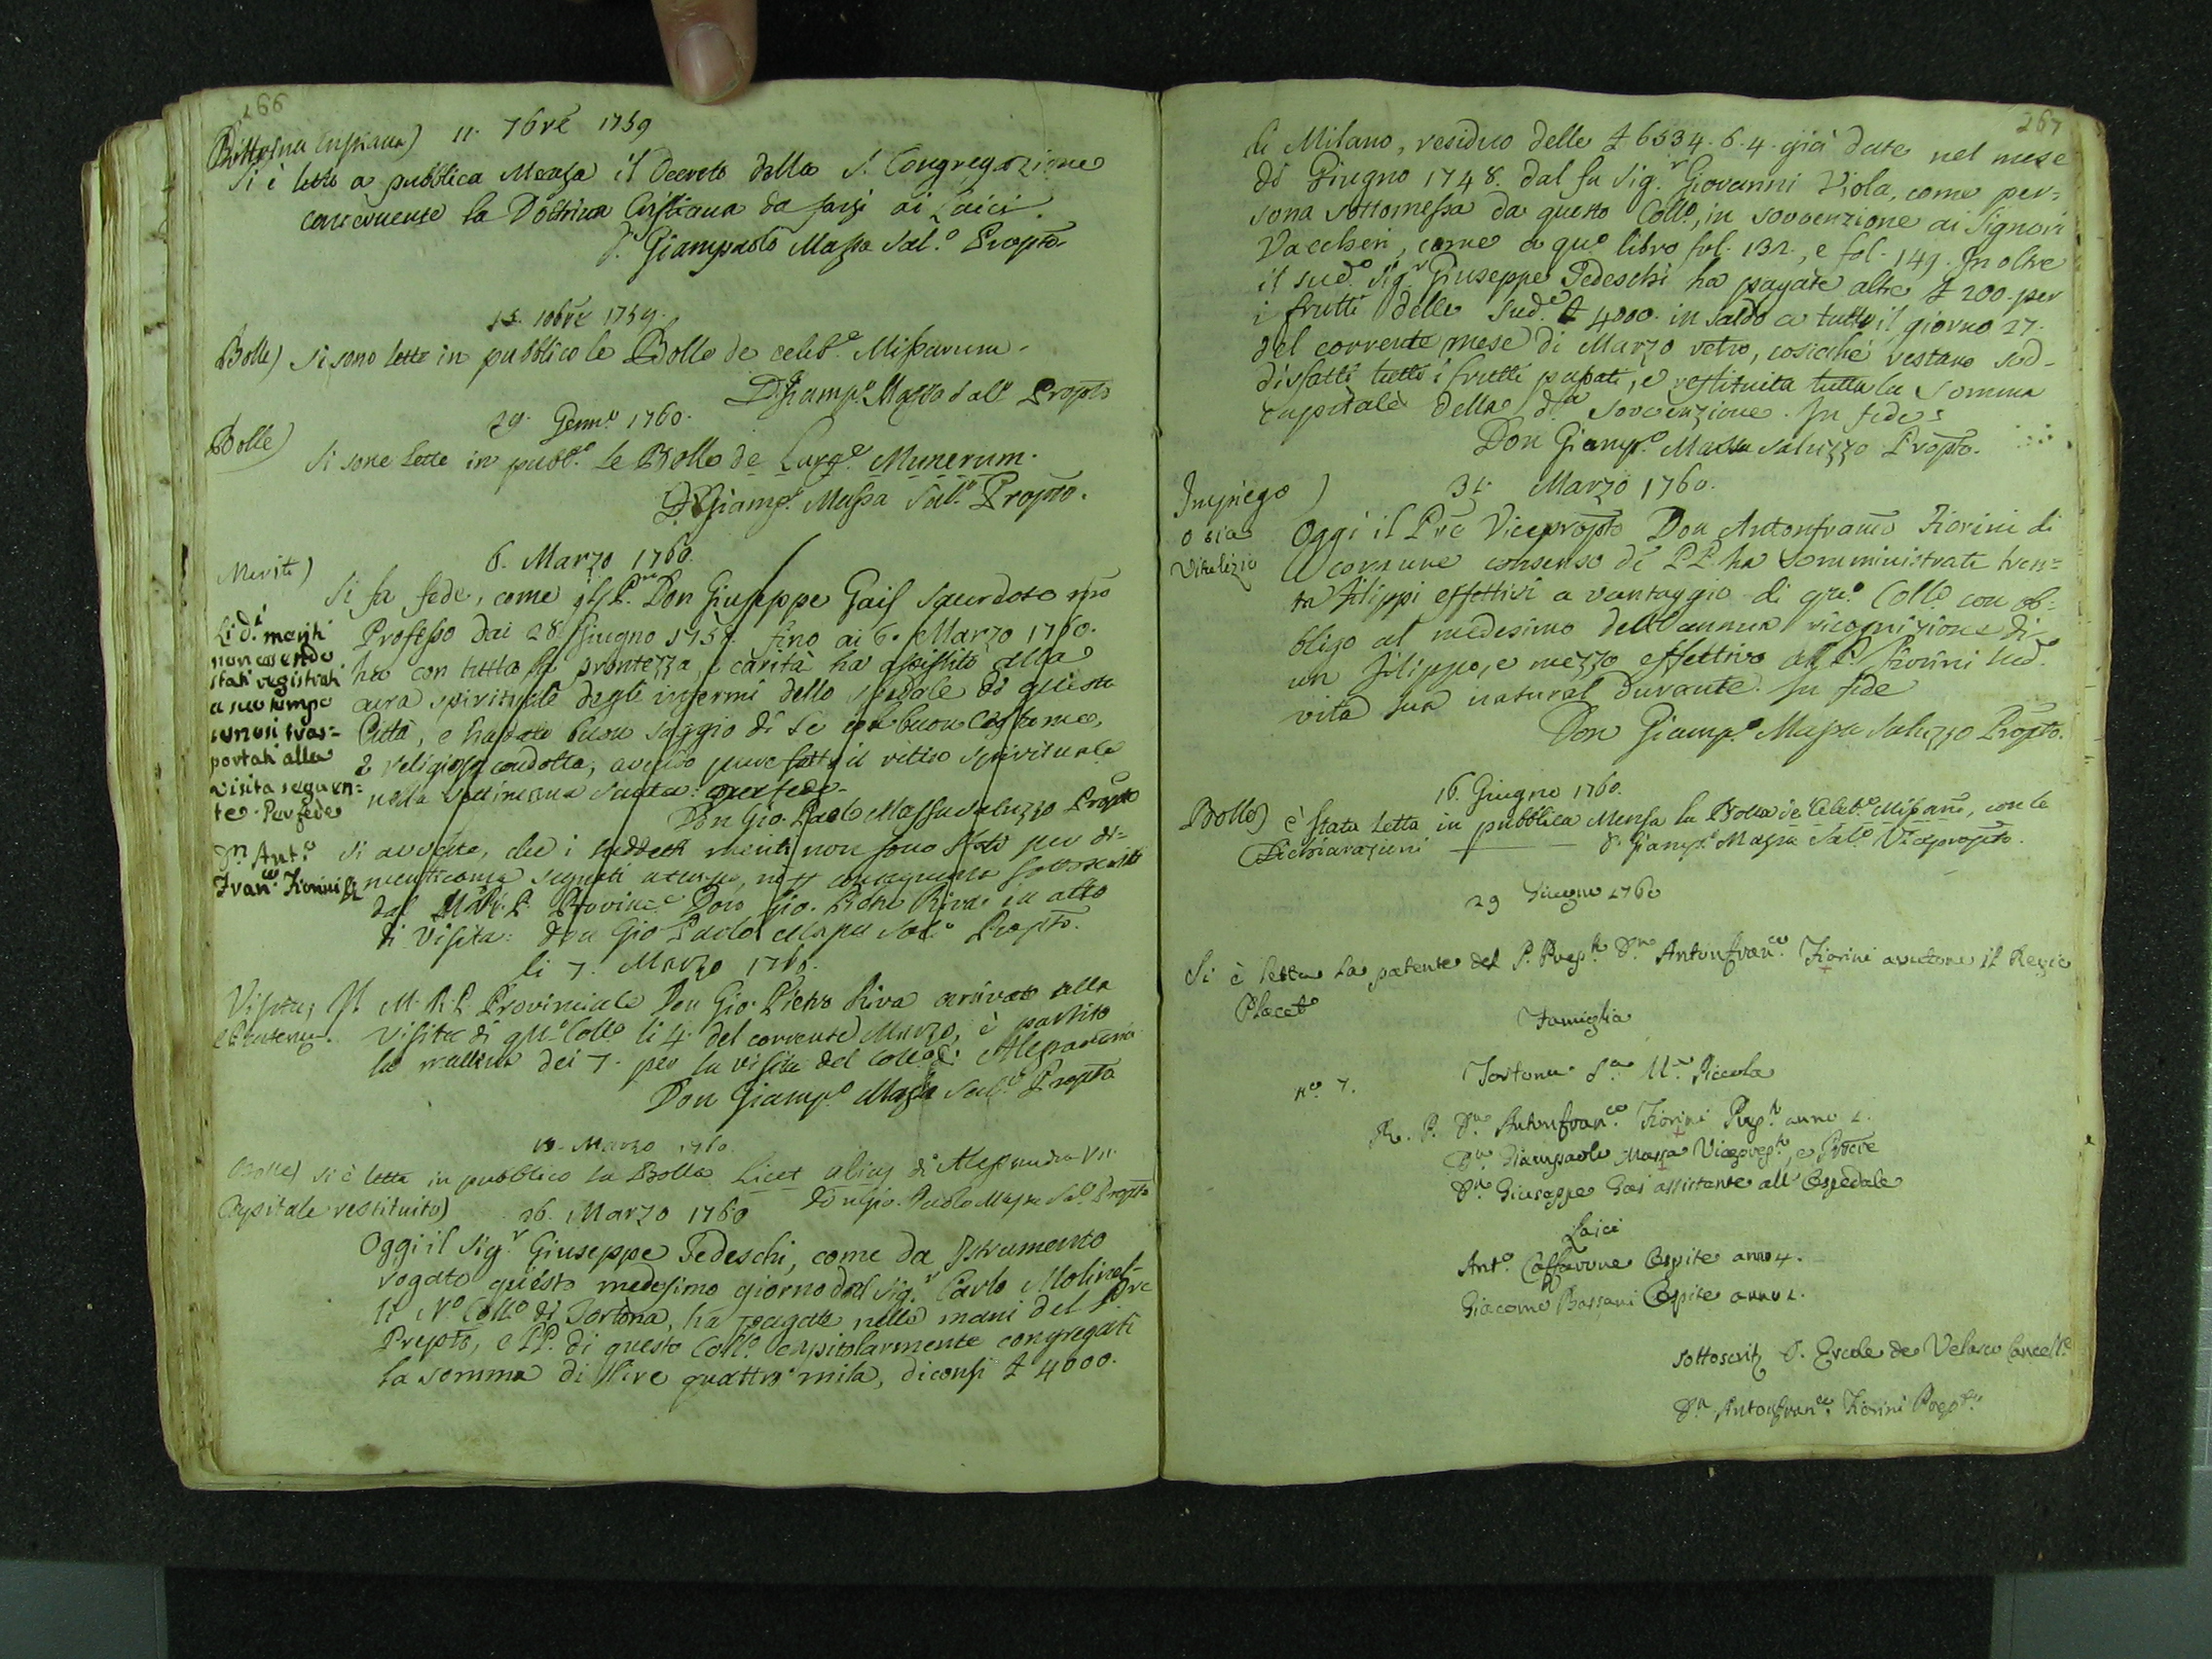 266
Dottrina Cristiana) 11. 7bre 1759
Si è letto a pubblica Mensa il Decreto della S. Congregazione
concernente la Dottrina Cristiana da farsi ai Laici.
D. Giampaolo Massa Sal.o Propto
15. 10bre 1759.
Bolle) Si sono lette in pubblico le Bolle de celeb.e Missarum.
D. Giamp.o Massa Sal.o Propto
29. Genn.o 1760.
Bolle) Si sono lette in pubb.o le Bolle de Larg.e Munerum.
D. Giamp.o Massa Sal.o Propto.
6. Marzo 1760.
Meriti)
Si fa fede, come il P. Don Giuseppe Gaif Sacerdote nro
Professo dai 28. Giugno 1759. fino ai 6. Marzo 1760.
ha con tutta la prontezza, e carità ha assistito alla
cura spirituale degli infermi dello spedale di questa
Città, e ha dato buon saggio di se con buon Costume,
e religiosa condotta, avendo pure fatto il ritiro spirituale
nella settimana Santa: per fede
Don Gio. Paolo Massa Saluzzo Propto
Li d.i meriti
non essendo
stati registrati
a suo tempo
sonosi tras=
portati alla
visita seguen=
te. Per fede
Dn. Ant.o
Fran.co Fiorini
Si avverte, che i suddetti meriti non sono stati per di=
menticanza segnati a tempo, ne conseguente sottoscritti
dal M. R. P. Provinc.e Don Gio. Pietro Riva in atto
di Visita: Don Gio Paolo Massa Sal.o Propto.
li 7. Marzo 1760.
Visita, Il M. R. P. Provinciale Don Gio. Pietro Riva arrivato alla
visita di qu.o Coll.o li 4. del corrente Marzo, è partito
la mattina dei 7. per la visita del Coll.o di Alessandria
Don Giamp.o Massa Sal.o Propto
Marzo 1760.
Bolle) Si è letta in pubblico la Bolla Licet alias di Alessandro VII.
Don Gio. Paolo Massa Sal.o Propto
Capitale restituito) 26. Marzo 1760
Oggi il Sig.r Giuseppe Tedeschi, come da Istrumento
rogato questo medesimo giorno dal Sig.r Carlo Molinel-
li N.o Coll.o di Tortona, ha pagato nelle mani del P.re
Prepto, e PP. di questo Coll.o capitolarmente congregati
la somma di lire quattro mila, diconsi £ 4000.
267
di Milano, residuo delle £ 6334. 6. 4. già date nel mese
di Giugno 1748. dal fu Sig.r Giovanni Viola, come per=
sona sottomessa da questo Coll.o, in sovvenzione ai Signori
Vaccheri, come a qu.o libro fol. 132., e fol. 149. Inoltre
il sud.o Sig.r Giuseppe Tedeschi ha pagate altre £ 200. per
i frutti delle sud.e £ 4000. in saldo a tutto il giorno 27.
del corrente mese di Marzo retro, cosicché restano sod-
disfatti tutti i frutti passati, e restituita tutta la somma
capitale della d.a sovvenzione. In fede:
Don Giamp.o Massa Saluzzo Propto.
Impiego )
o sia
Vitalizio
31. Marzo 1760.
Oggi il Pre Vicepropto Don Antonfranco Fiorini di
comune consenso de' PP. ha somministrate tren=
ta Filippi effettivi a vantaggio di qu.o Coll.o con ob=
bligo al medesimo dell'annua ricognizione di
un Filippo, e mezzo effettivo al P. Fiorini sud.o
vita sua natural durante. In fede
Don Giamp.o Massa Saluzzo Propto.
16. Giugno 1760.
Bolle) è stata letta in pubblica Mensa la Bolla de Celeb.e Missarum, con le
Dichiarazioni D. Giamp.o Massa Sal.o Vicepropto.
29 Giugno 1760
Si è letta la patente del P. Prep.to Dn. Antonfran.co Fiorini avutone il Regio
Placet
Famiglia
n.o 7. Tortona S.a M.a Piccola
R. P. Dn. Antonfran.co Fiorini Prep.to anno 1.
Dn. Giampaolo Massa Viceprep.to, e Procre
Dn. Giuseppe Gaei assistente all'Ospedale
Laici
Ant.o Caffarone Ospite anno 4.
Giacomo Bassani Ospite anno 1.
Sottoscritt. D. Ercole de Velasco Cancell.e
Dn. Antonfran.co Fiorini Prep.to